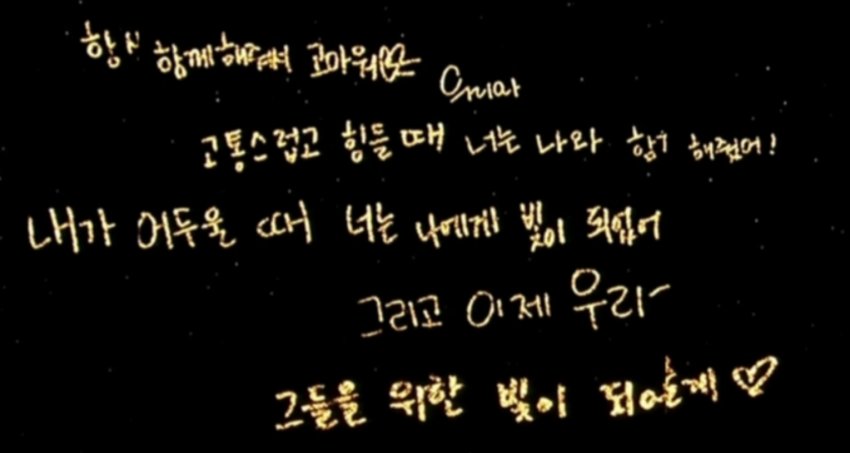 항시 함께해줘서 고마워♡
고통스럽고 힘들 때 너는 나와 함께 해줬어!
내가 어두울 때 너는 나에게 빛이 되었어
그리고 이제 우리
그들을 위한 빛이 되어줄게 ♡